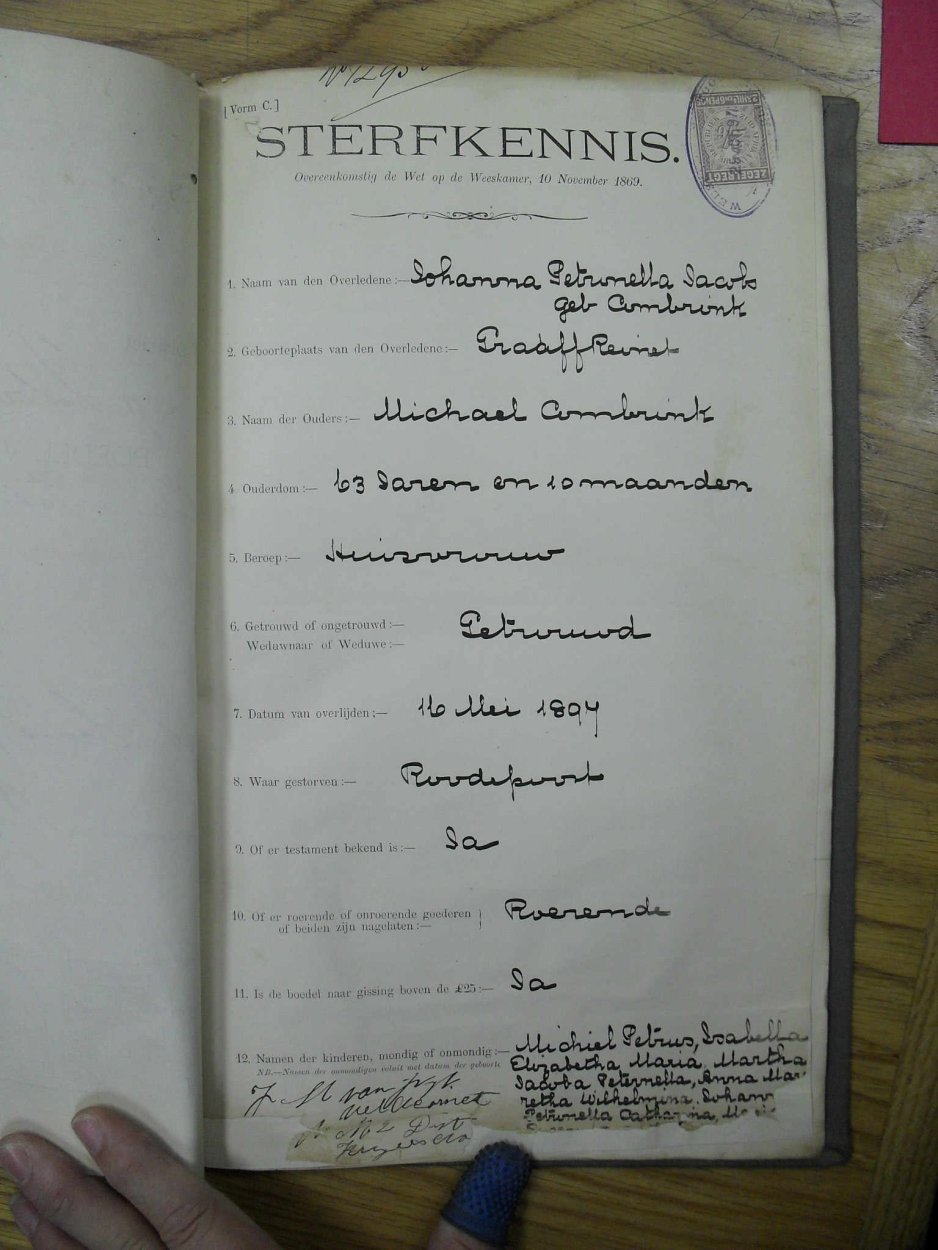 [Vorm C.]
STERFKENNIS.
Overeenkomstig de Wet op de Weeskamer, 10 November 1869.
ZEGELREGT
1. Naam van den Overledene:— Johanna Petronella Jacobs
geb Combrink
2. Geboorteplaats van den Overledene:— Graaff Reinet
3. Naam der Ouders:— Michael Combrink
4. Ouderdom:— 63 Jaren en 10 maanden
5. Beroep:— Huisvrouw
6. Getrouwd of ongetrouwd:— Getrouwd
Weduwnaar of Weduwe:—
7. Datum van overlijden:— 16 Mei 1897
8. Waar gestorven:— Roodepoort
9. Of er testament bekend is:— Ja
10. Of er roerende of onroerende goederen Roerende
of beiden zijn nagelaten:—
11. Is de boedel naar gissing boven de £25:— Ja
12. Namen der kinderen, mondig of onmondig:— Michiel Petrus, Isabella
NB.—Namen der onmondigen voluit met datum der geboorte
Elizabetha Maria, Martha
Jacoba Peternella, Anna Mar
retha Wilhelmina, Johann
Petronella Catharina,
Veldcornet